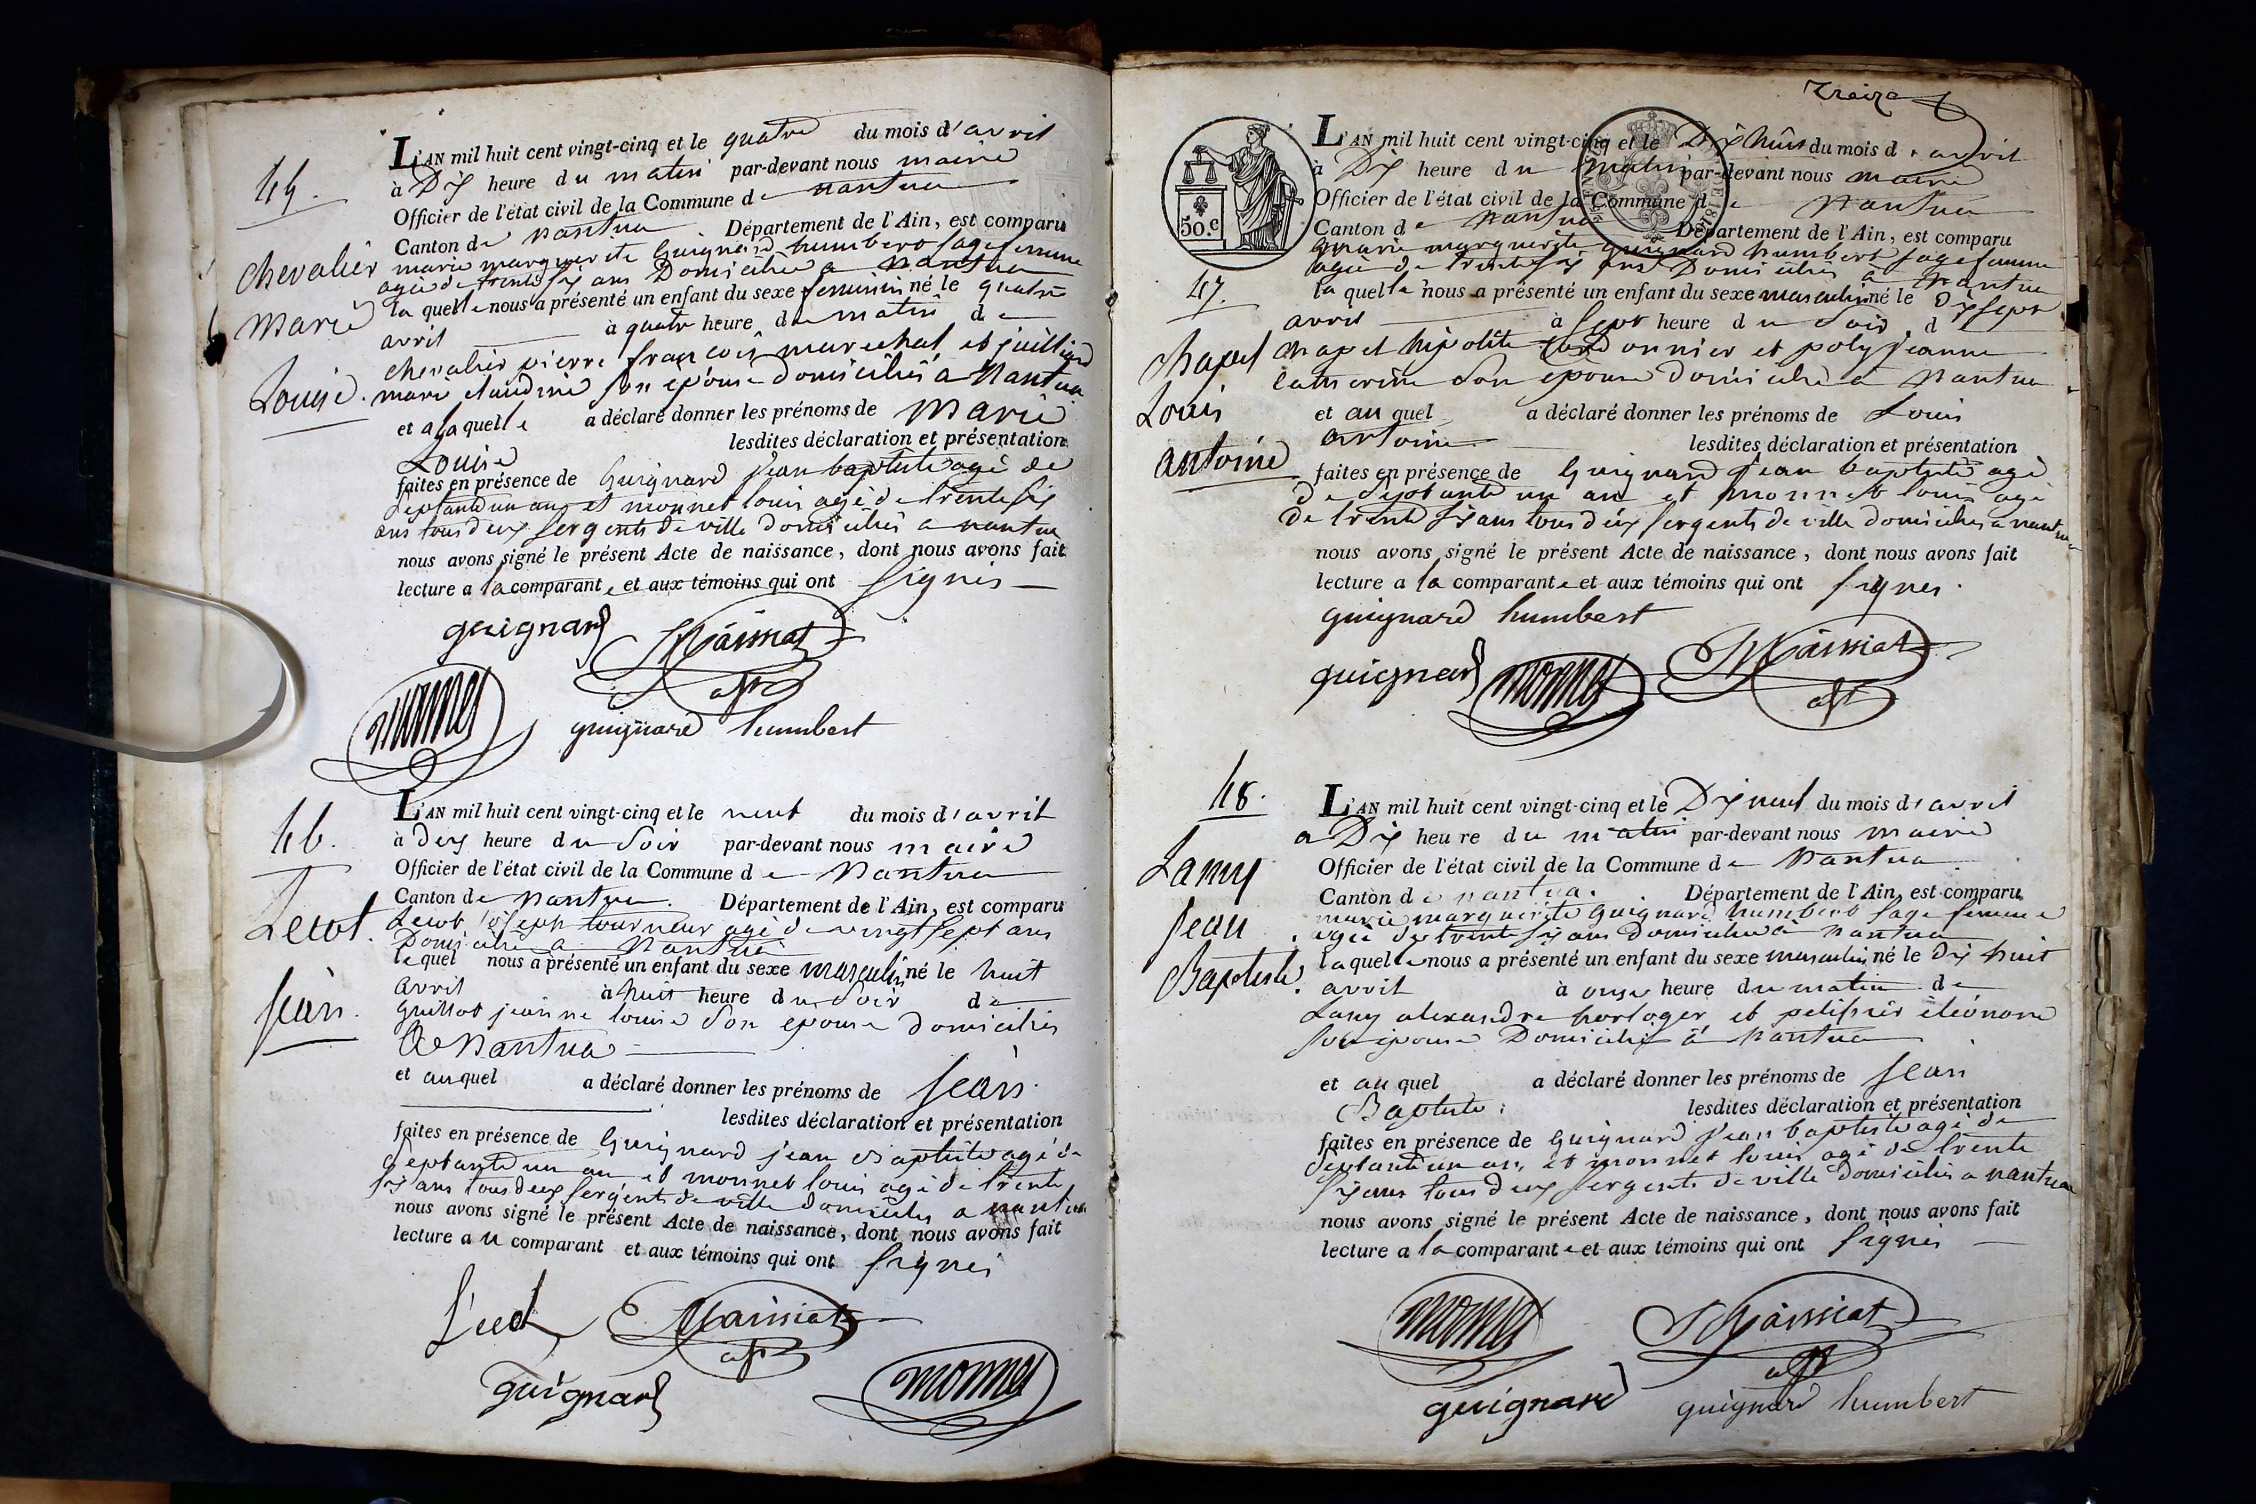 45.
Chevalier
Marie
Louise.
L'AN mil huit cent vingt-cinq et le quatre du mois d'avril
à Dix heure du matin par-devant nous maire
Officier de l'état civil de la Commune de nantua
Canton de nantua Département de l'Ain, est comparu
marie marguerite Guignard humbert sage femme
agée de trente six ans Domiciliée a Nantua
la quelle nous a présenté un enfant du sexe feminin né le quatre
avril à quatre heure du matin de
chevalier pierre françois marechal et juilliard
marie claudine son epouse domiciliés a Nantua
et a la quelle a déclaré donner les prénoms de Marie
Louise lesdites déclaration et présentation
faites en présence de Guignard jean baptiste agé de
septante un ans et monnet louis agé de trente six
ans tous deux sergents de ville domiciliés a nantua
nous avons signé le présent Acte de naissance, dont nous avons fait
lecture a la comparante et aux témoins qui ont signés
guignard Maissiat
adjt
monnet guignard humbert
46.
Lecot.
Jean.
L'AN mil huit cent vingt-cinq et le neuf du mois d'avril
à deux heure du Soir par-devant nous maire
Officier de l'état civil de la Commune de Nantua
Canton de nantua. Département de l'Ain, est comparu
Lecot joseph tourneur agé de vingt sept ans
Domicilié a Nantua
le quel nous a présenté un enfant du sexe masculin né le huit
avril à huit heure du Soir de
guillot jeanne louise Son epouse domiciliés
a Nantua
et au quel a déclaré donner les prénoms de Jean.
lesdites déclaration et présentation
faites en présence de Guignard jean Baptiste agé de
septante un an et monnet louis agé de trente
six ans tous deux sergents de ville domiciliés a nantua
nous avons signé le présent Acte de naissance, dont nous avons fait
lecture au comparant et aux témoins qui ont signés
Maissiat
adjt
guignard monnet
treize
50.c
47.
Chapel
Louis
antoine
L'AN mil huit cent vingt-cinq et le Dix huit du mois d'avril
à Dix heure du matin par-devant nous maire
Officier de l'état civil de la Commune de Nantua
Canton de Nantua Département de l'Ain, est comparu
marie marguerite guignard humbert sage femme
agée de trente six ans Domiciliée à Nantua
la quelle nous a présenté un enfant du sexe masculin né le Dix sept
avril à sept heure du Soir d
chapel hipolite cordonnier et poly jeanne
catherine Son epouse domiciliés a Nantua
et au quel a déclaré donner les prénoms de Louis
antoine lesdites déclaration et présentation
faites en présence de Guignard Jean baptiste agé
de septante un an et monnet louis agé
de trente six ans tous deux sergents de ville domiciliés a nantua
nous avons signé le présent Acte de naissance, dont nous avons fait
lecture a la comparante et aux témoins qui ont signés.
guignard humbert
guignard monnet Maissiat
adjt
48.
Lamy
Jean
Baptiste.
L'AN mil huit cent vingt-cinq et le Dix neuf du mois d'avril
a Dix heure du matin par-devant nous maire
Officier de l'état civil de la Commune de Nantua
Canton de nantua. Département de l'Ain, est comparu
marie marguerite guignard humbert sage femme
agée de trente six ans domiciliée à nantua
la quelle nous a présenté un enfant du sexe masculin né le Dix huit
avril à onze heure du matin de
Lamy alexandre horloger et pelissier éléonore
son epouse Domiciliés à Nantua
et au quel a déclaré donner les prénoms de Jean
Baptiste. lesdites déclaration et présentation
faites en présence de Guignard Jean baptiste agé de
septante un an, et monnet louis agé de trente
six ans tous deux sergents de ville domiciliés a nantua
nous avons signé le présent Acte de naissance, dont nous avons fait
lecture a la comparante et aux témoins qui ont signés
monnet Maissiat
adjt
guignard guignard humbert